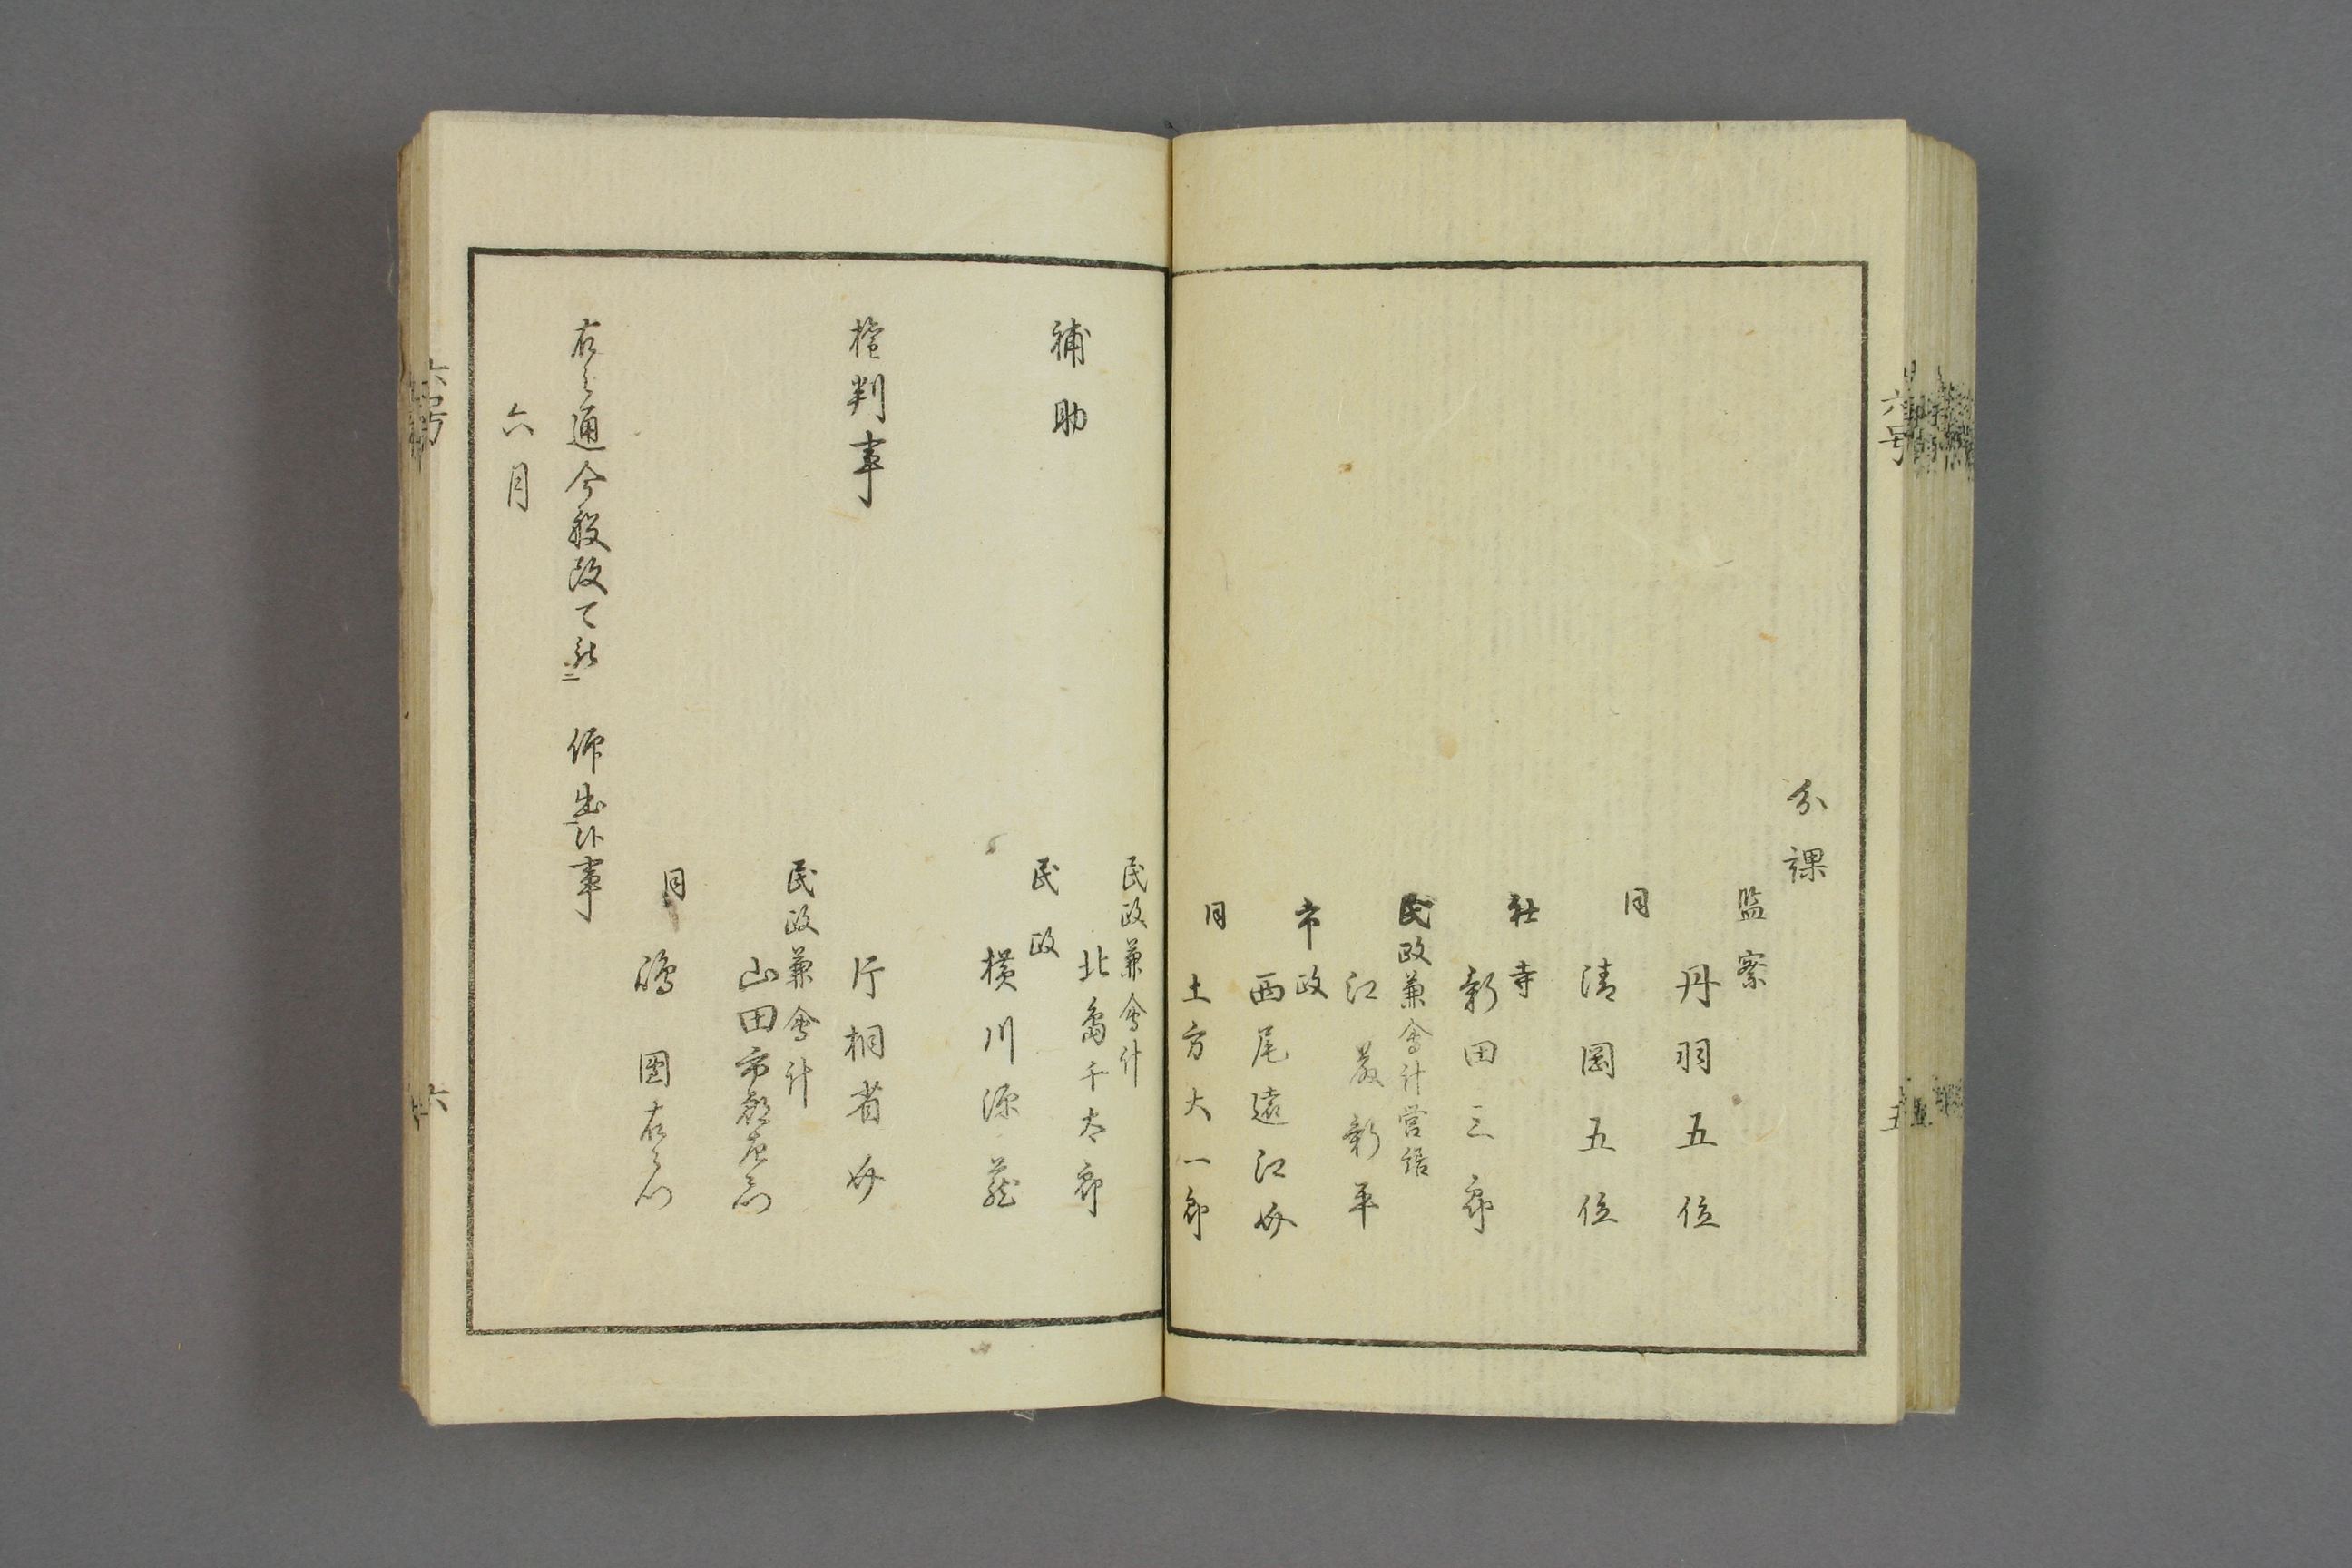 分課
監察
丹羽五位
同
清岡五位
社寺
新田三郎
民政兼會計営繕
江藤新平
市政
西尾遠江介
同
土方大一郎
民政兼會計
補助
北島千太郎
民政
横川源蔵
権判事
片桐省介
民政兼會計
山田市郎左衛門
同
嶋 團右衛門
右之通今般改て更ニ 仰出候事
六月
六号
六
六号
五